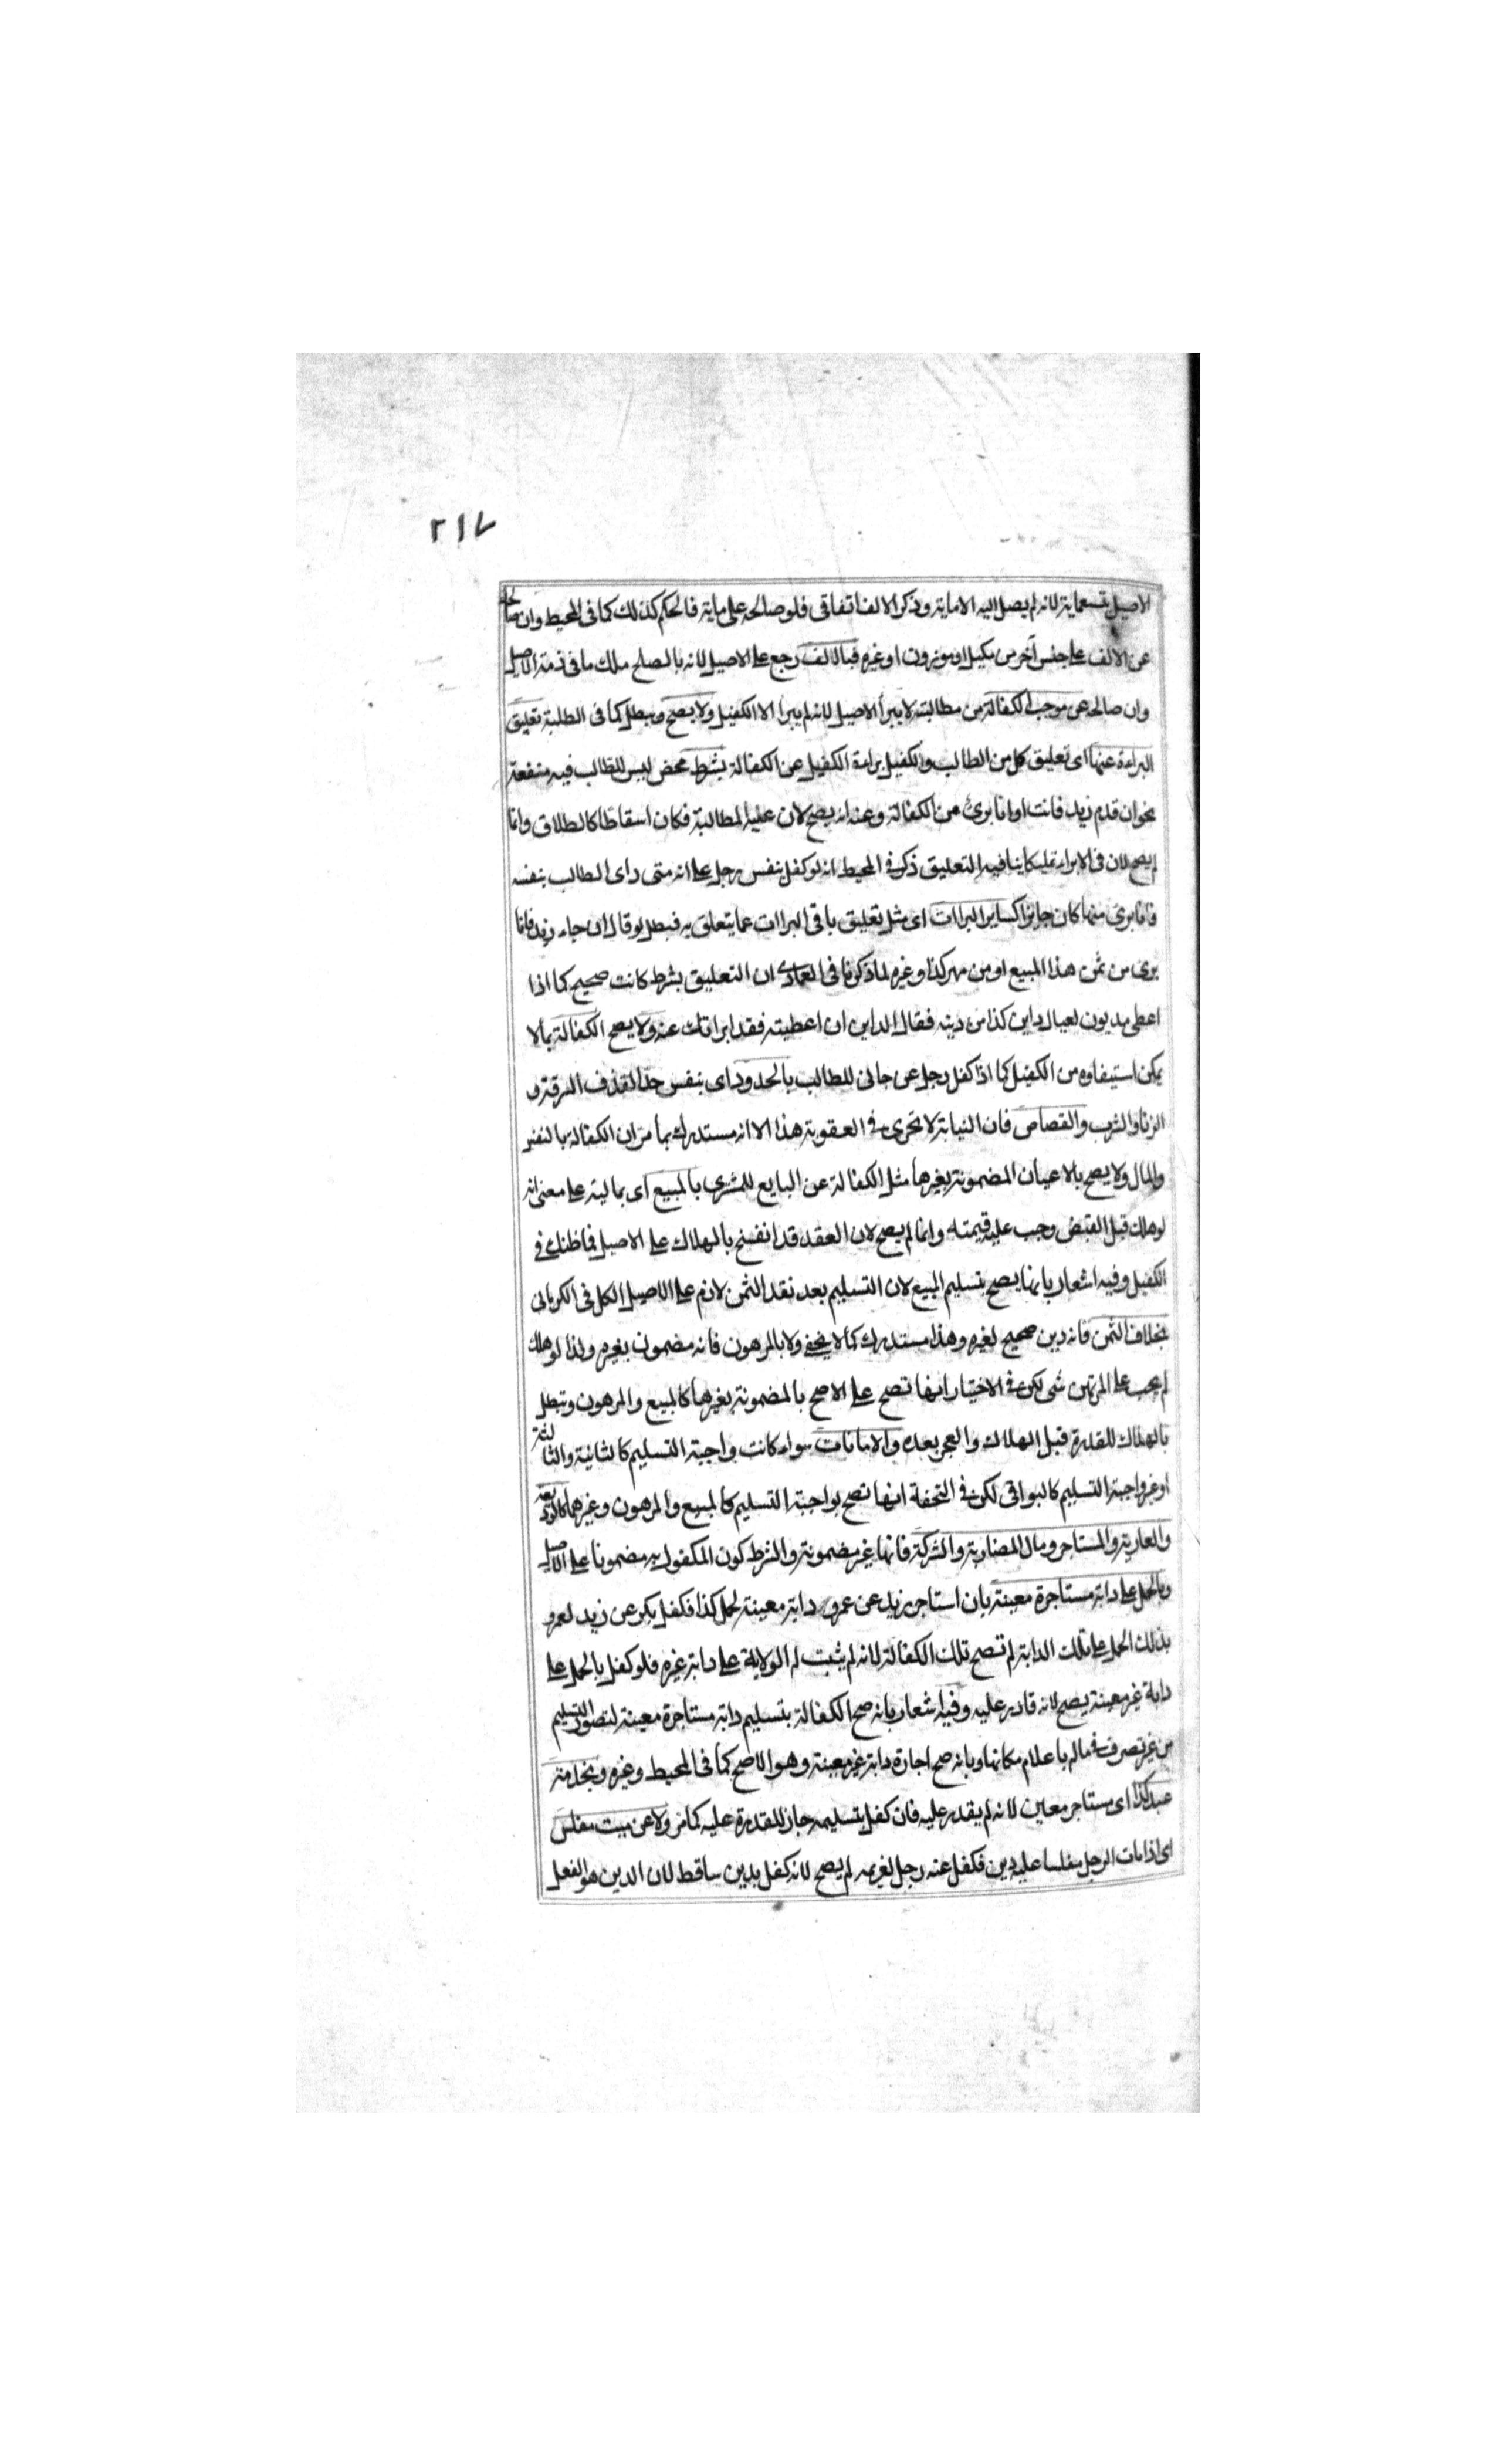 ٢١٧
الاصيل بتسعماية لانه لم يصل اليه الا ماية وذكر الالف اتفاقى فلو صالحه على ماية فالحكم كذلك كما فى المحيط وان صالحه
عن الالف على جنس آخر من مكيل او موزون او غيره فبالالف رجع على الاصيل لانه بالصلح ملك ما فى ذمة الاصيل
وان صالح عن موجب الكفالة من مطالبته لا يبرأ الاصيل لانه لم يبرأ الا الكفيل ولا يصح ويبطل كما فى الطلبة تعليق
البراءة عنها اى تعليق كل من الطالب والكفيل براءة الكفيل عن الكفالة بشرط محض ليس للطالب فيه منفعة
نحو ان قدم زيد فانت او انا برئ من الكفالة وعنه انه يصح لان عليه المطالبة فكان اسقاطا كالطلاق وانما
لم يصح لان فى الابراء تمليكا ينافيه التعليق ذكر فى المحيط انه لو كفل بنفس رجل على انه متى راى الطالب بنفسه
فانا برى منها كان جايزا كساير البراات اى مثل تعليق باقى البراات عما يتعلق به فبطل لو قال ان جاء زيد فانا
برى من ثمن هذا المبيع او من مهر كذا وغيره لما ذكرنا فى العمادى ان التعليق بشرط كانت صحيح كما اذا
اعطى مديون لعيال داين كذا من دينه فقال الداين ان اعطيته فقد ابراتك عنه ولا يصح الكفالة بما لا
يمكن استيفاوه من الكفيل كما اذا كفل رجل عن جانى للطالب بالحدود اى بنفس حد القذف السرقة و
الزنا والشرب والقصاص فان النيابة لا تجرى فى العقوبة هذا الا انه مستدرك بما مر ان الكفالة بالنفس
والمال ولا يصح بالاعيان المضمونة بغيرها مثل الكفالة عن البايع للمشترى بالمبيع اى بماليته على معنى انه
لو هلك قبل القبض وجب عليه قيمته وانما لم يصح لان العقد قد انفسخ بالهلاك على الاصيل فما ظنك فى
الكفيل وفيه اشعار بانها يصح بتسليم المبيع لان التسليم بعد نقد الثمن لازم على الاصيل الكل فى الكرمانى
بخلاف الثمن فانه دين صحيح لغيره وهذا مستدرك كما لا يخفى ولا بالمرهون فانه مضمون بغيره ولذا لو هلك
لم يجب على المرتهن شى لكن فى الاختيار انها تصح على الاصح بالمضمونة بغيرها كالمبيع والمرهون وتبطل
بالهلاك للقدرة قبل الهلاك والعجز بعده والامانات سواء كانت واجبة التسليم كالثانية والثالثة
او غير واجبة التسليم كالبواقى لكن فى التحفة انها تصح بواجبة التسليم كالمبيع والمرهون وغيرهما كالوديعة
والعارية والمستاجر ومال المضاربة والشركة فانها غير مضمونة والشرط كون المكفول به مضمونا على الاصيل
وبالحمل على دابة مستاجرة معينة بان استاجر زيد عن عمرو دابة معينة لحمل كذا فكفل بكر عن زيد لعمرو
بذلك الحمل على تلك الدابة لم تصح تلك الكفالة لانه لم يثبت له الولاية على دابة غيره فلو كفل بالحمل على
دابة غير معينة يصح لانه قادر عليه وفيه اشعار بانه صح الكفالة بتسليم دابة مستاجرة معينة لتصور التسليم
من غير تصرف فى ماله باعلام مكانها وبانه صح اجارة دابة غير معينة وهو الاصح كما فى المحيط وغيره وبخدمة
عبد كذا اى مستاجر معين لانه لم يقدر عليه فان كفل بتسليمه جاز للقدرة عليه كما مر ولا عن ميت مفلس
اى اذا مات الرجل مفلسا عليه دين فكفل عنه رجل لغريمه لم يصح لانه كفل بدين ساقط لان الدين هو الفعل